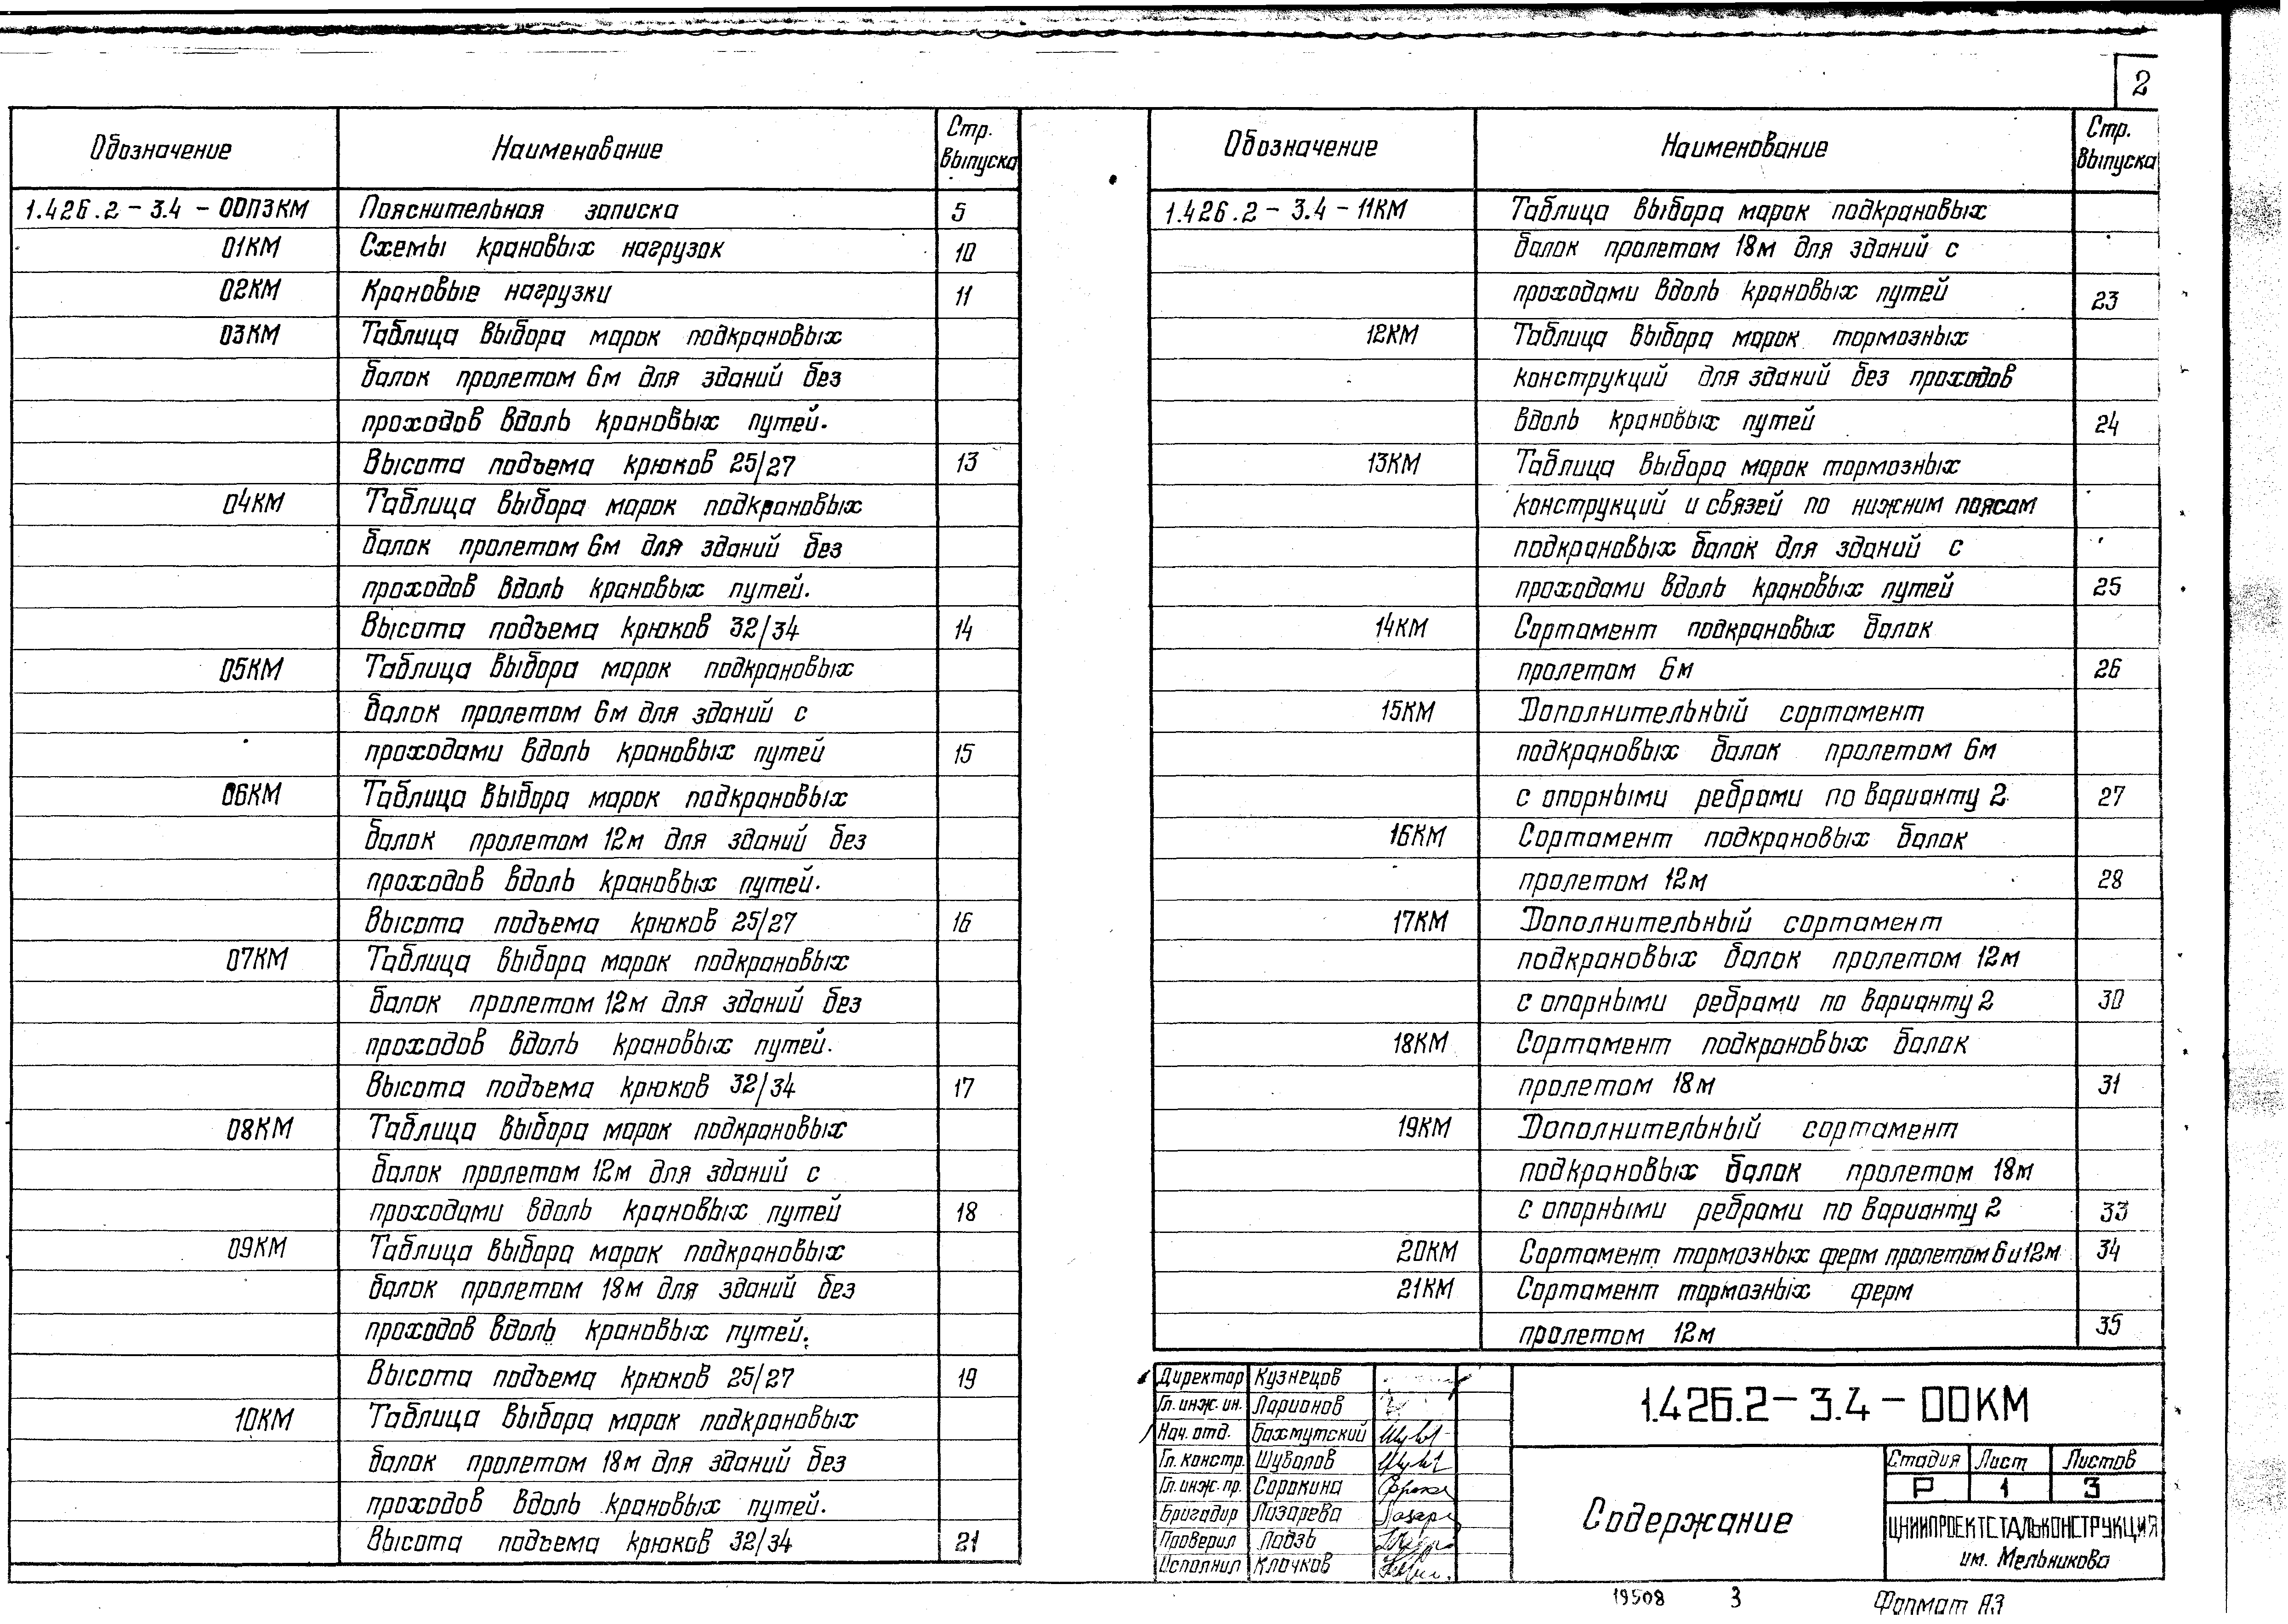 2
Обозначение Наименование Стр. выпуска
1.426.2-3.4-00ПЗКМ Пояснительная записка 5
01КМ Схемы крановых нагрузок 10
02КМ Крановые нагрузки 11
03КМ Таблица выбора марок подкрановых
балок пролетом 6м для зданий без
проходов вдоль крановых путей.
Высота подъема крюков 25/27 13
04КМ Таблица выбора марок подкрановых
балок пролетом 6м для зданий без
проходов вдоль крановых путей.
Высота подъема крюков 32/34 14
05КМ Таблица выбора марок подкрановых
балок пролетом 6м для зданий с
проходами вдоль крановых путей 15
06КМ Таблица выбора марок подкрановых
балок пролетом 12м для зданий без
проходов вдоль крановых путей.
Высота подъема крюков 25/27 16
07КМ Таблица выбора марок подкрановых
балок пролетом 12м для зданий без
проходов вдоль крановых путей.
Высота подъема крюков 32/34 17
08КМ Таблица выбора марок подкрановых
балок пролетом 12м для зданий с
проходами вдоль крановых путей 18
09КМ Таблица выбора марок подкрановых
балок пролетом 18м для зданий без
проходов вдоль крановых путей.
Высота подъема крюков 25/27 19
10КМ Таблица выбора марок подкрановых
балок пролетом 18м для зданий без
проходов вдоль крановых путей.
Высота подъема крюков 32/34 21
Обозначение Наименование Стр. выпуска
1.426.2-3.4-11КМ Таблица выбора марок подкрановых
балок пролетом 18м для зданий с
проходами вдоль крановых путей 23
12КМ Таблица выбора марок тормозных
конструкций для зданий без проходов
вдоль крановых путей 24
13КМ Таблица выбора марок тормозных
конструкций и связей по нижним поясам
подкрановых балок для зданий с
проходами вдоль крановых путей 25
14КМ Сортамент подкрановых балок
пролетом 6м 26
15КМ Дополнительный сортамент
подкрановых балок пролетом 6м
с опорными ребрами по варианту 2 27
16КМ Сортамент подкрановых балок
пролетом 12м 28
17КМ Дополнительный сортамент
подкрановых балок пролетом 12м
с опорными ребрами по варианту 2 30
18КМ Сортамент подкрановых балок
пролетом 18м 31
19КМ Дополнительный сортамент
подкрановых балок пролетом 18м
с опорными ребрами по варианту 2 33
20КМ Сортамент тормозных ферм пролетом 6 и 12м 34
21КМ Сортамент тормозных ферм
пролетом 12м 35
Директор Кузнецов
Гл. инж. ин. Ларионов
Нач. отд. Бахмутский
Гл. констр. Шувалов
Гл. инж. пр. Сорокина
Бригадир Лазарева
Проверил Ладзь
Исполнил Клочков
1.426.2-3.4-00КМ
Содержание
Стадия Лист Листов
Р 1 3
ЦНИИПРОЕКТСТАЛЬКОНСТРУКЦИЯ
им. Мельникова
19508 3 Формат А3